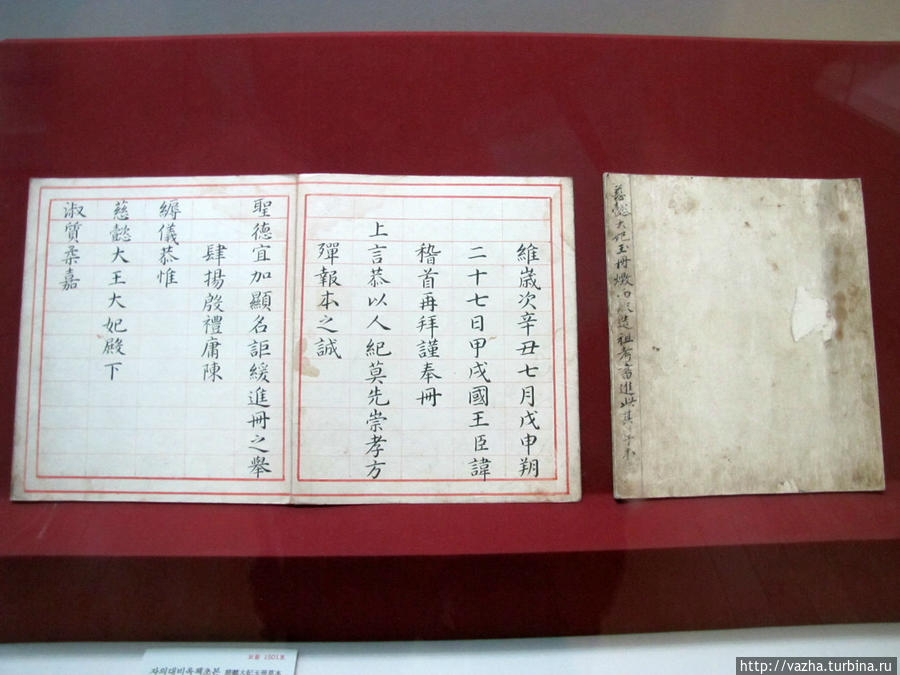 維歲次辛丑七月戊申朔
二十七日甲戌國王臣諱
稽首再拜謹奉冊
上言恭以人紀莫先崇孝方
殫報本之誠
聖德宜加顯名詎緩進冊之擧
肆揚殷禮庸陳
縟儀恭惟
慈懿大王大妃殿下
淑質柔嘉
慈懿大妃玉冊 祖考 進此其
보물 1501호
자의대비옥책초본 慈懿大妃玉冊草本
http://vazha.turbina.ru